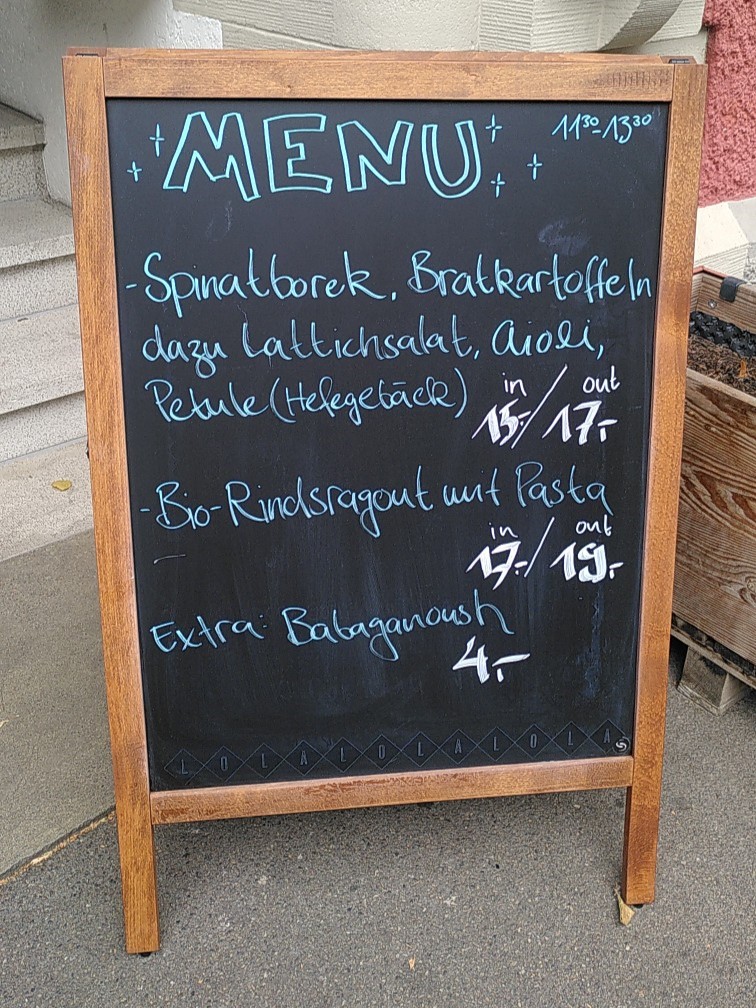 MENU
11³⁰-13³⁰
-Spinatborek, Bratkartoffeln
dazu Lattichsalat, Aioli,
Petule (Hefegebäck)
in out
15.-/17.-
-Bio-Rindsragout mit Pasta
in out
17.-/19.-
Extra: Babaganoush
4.-
LOLALOLALOLA